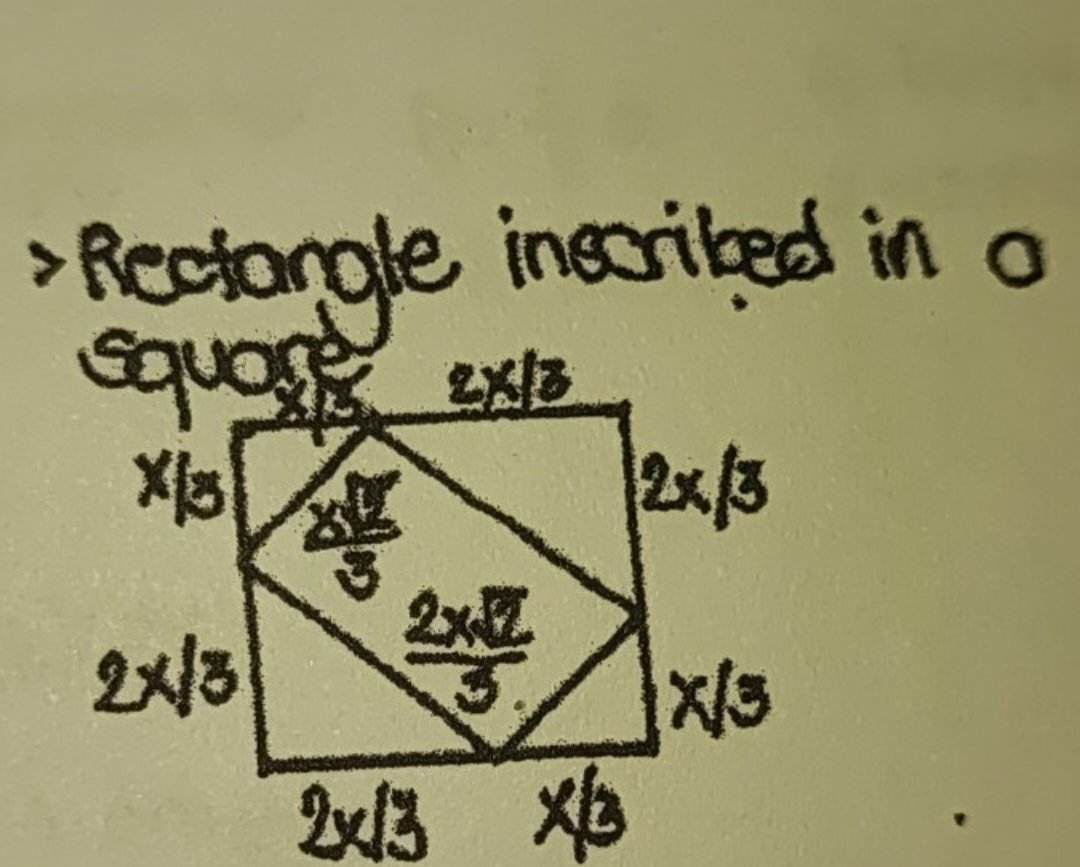 > Rectangle inscribed in a
square
x/3 2x/3
x/3 2x/3
x√2/3
2x√2/3
2x/3 x/3
2x/3 x/3